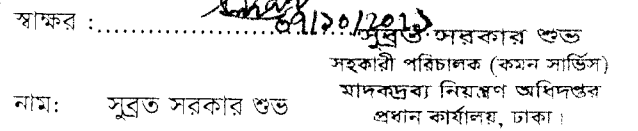 স্বাক্ষর :
সুব্রত সরকার শুভ
সহকারী পরিচালক (কমন সার্ভিস)
মাদকদ্রব্য নিয়ন্ত্রণ অধিদপ্তর
প্রধান কার্যালয়, ঢাকা।
নাম: সুব্রত সরকার শুভ